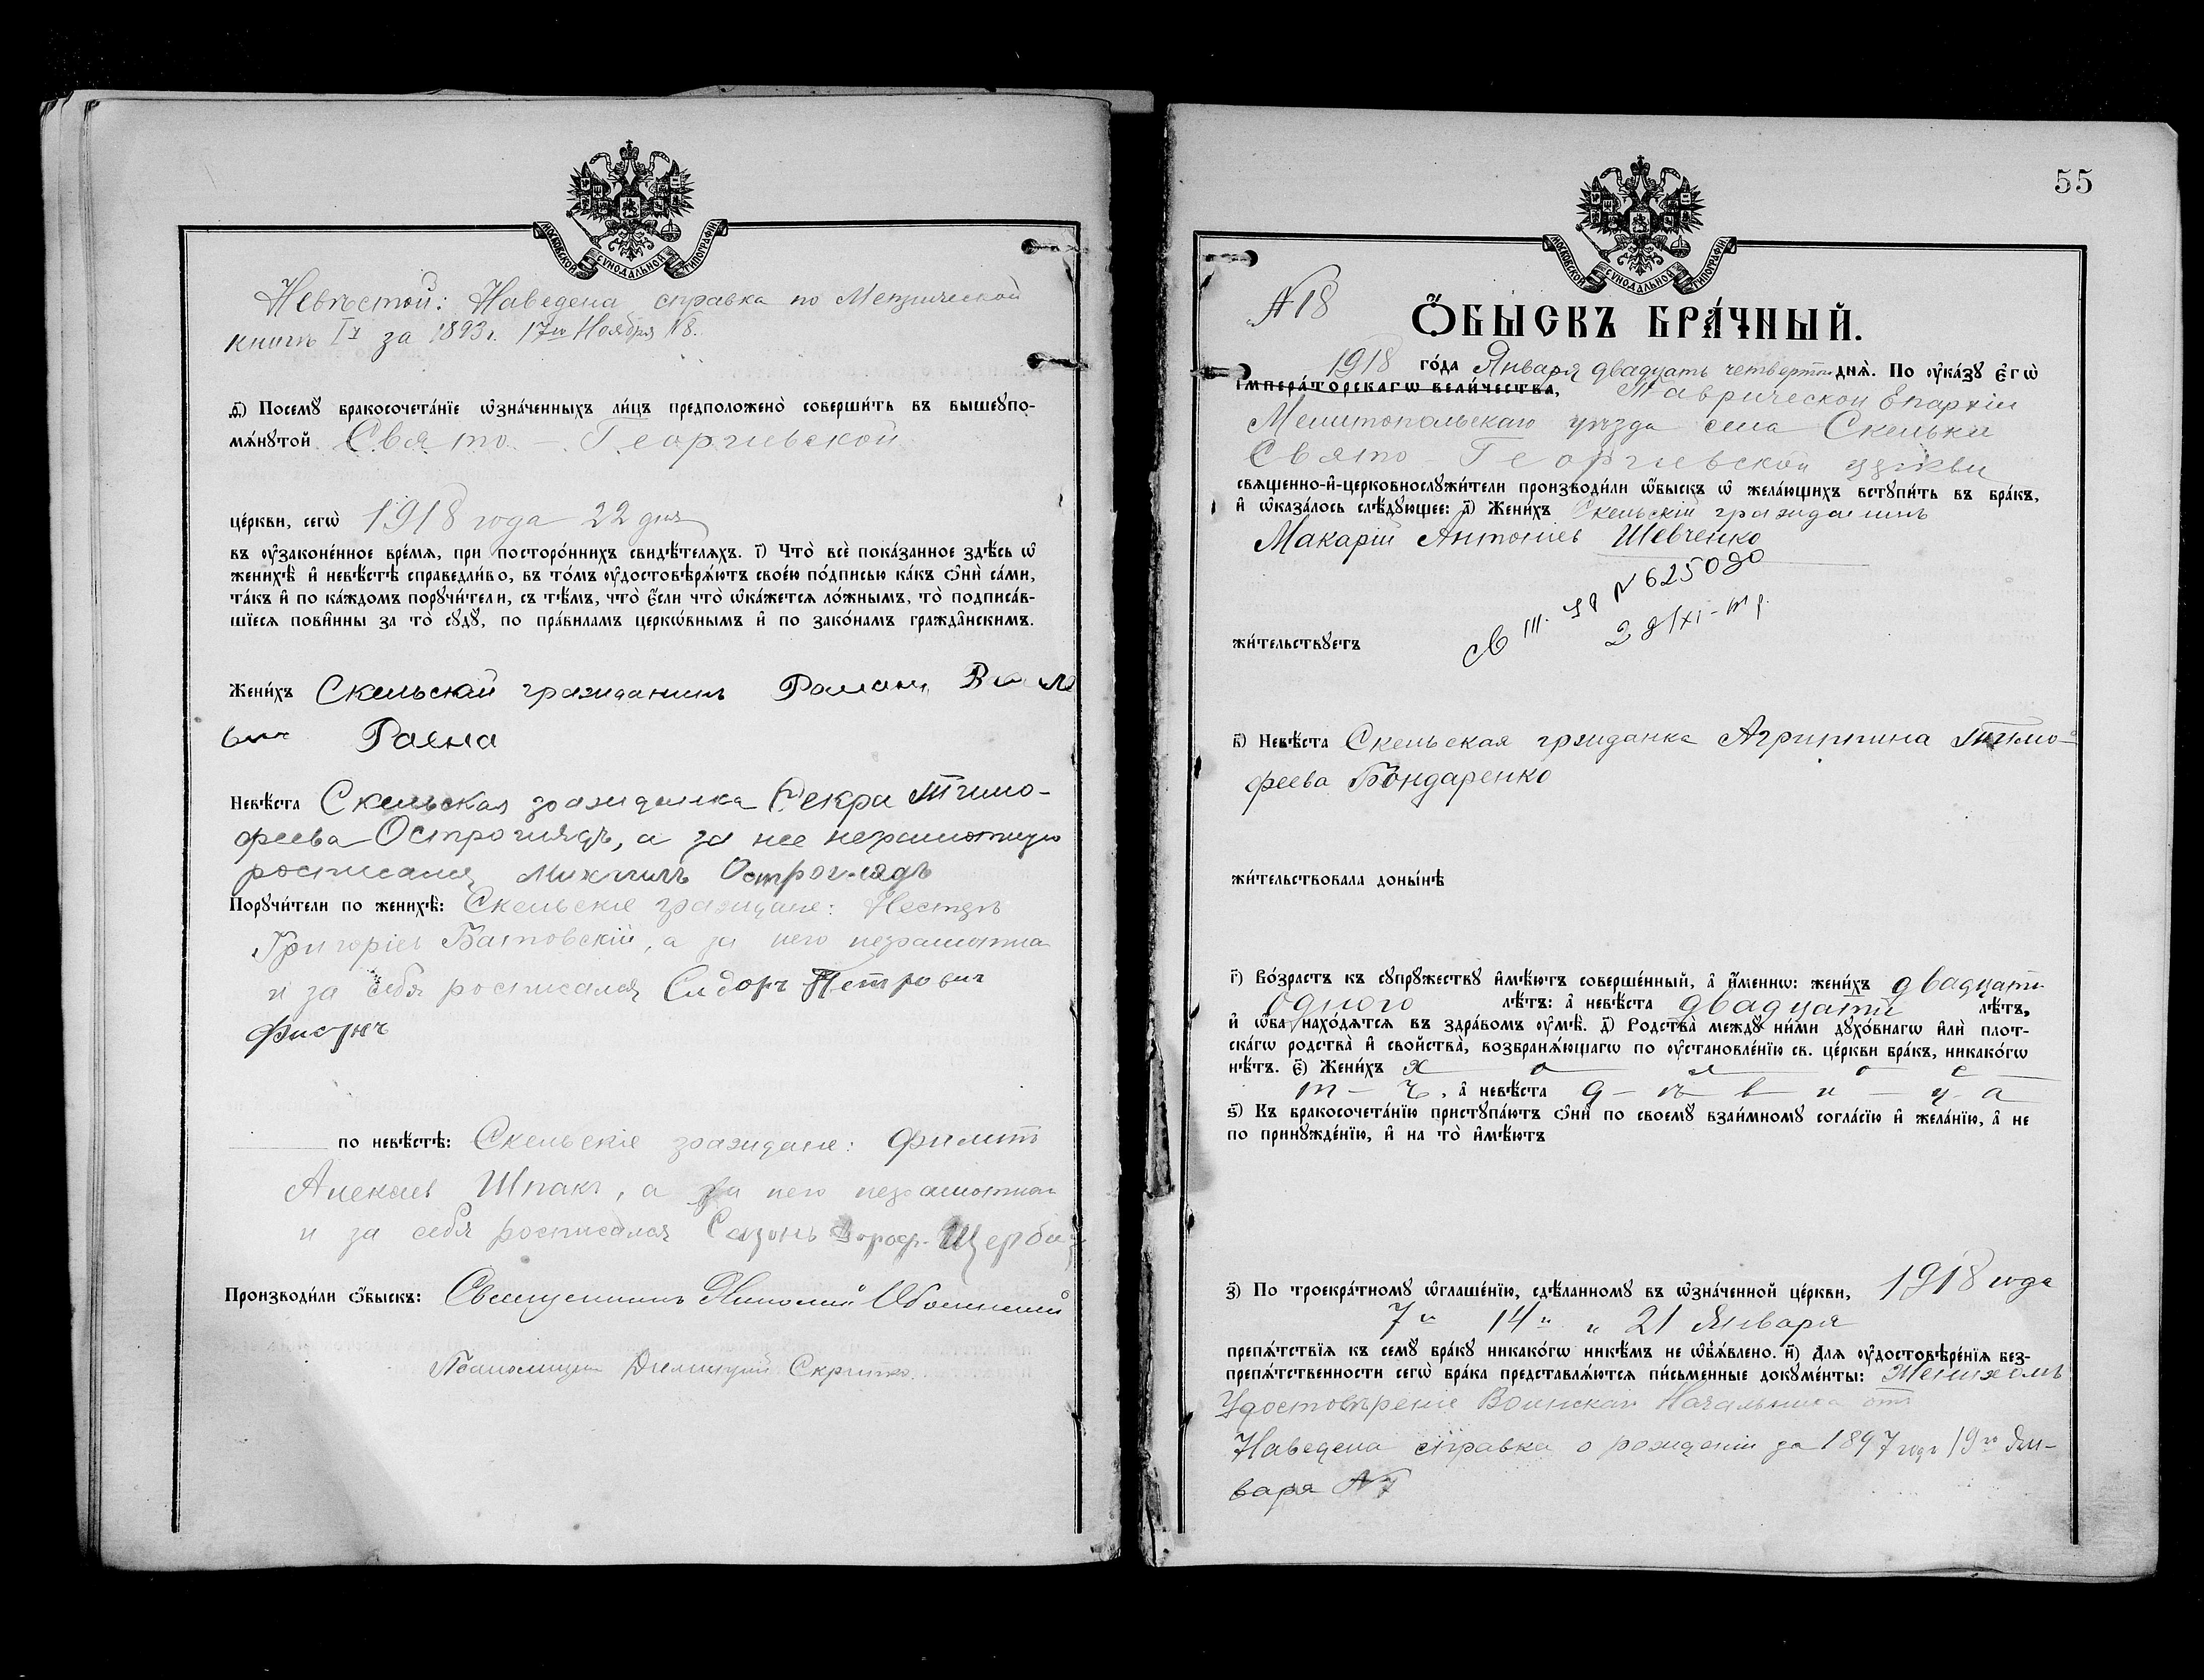 МОСКОВСКОЙ СѴНОДАЛЬНОЙ ТИПОГРАФІИ
Невѣстой: Наведена справка по Метрической
книгѣ Iч за 1893 г. 17го Ноября №8.
д҃) Посемꙋ̀ бракосочета́нїе ѡ҆зна́ченныхъ ли́цъ предположено̀ соверши́ть въ вышеꙋпо-
мѧ́нꙋтой Свято - Георгіевской
це́ркви, сегѡ̀ 1918 года 22 дня
въ ᲂу҆зако́ненное вре́мѧ, при посторо́ннихъ свидѣ́телѧхъ. і҃) Что̀ всѐ пока́занное здѣ́сь ѡ҆
женихѣ̀ и҆ невѣ́стѣ справедли́во, въ то́мъ ᲂу҆достовѣрѧ́ютъ свое́ю по́дписью ка́къ ѻ҆нѝ са́ми,
та́къ и҆ по ка́ждомъ порꙋчи́тели, съ тѣ́мъ, что̀ є҆́сли что̀ ѡ҆ка́жетсѧ ло́жнымъ, то̀ подписа́в-
шїесѧ пови́нны за то̀ сꙋдꙋ̀, по пра́виламъ церко́внымъ и҆ по зако́намъ гражда́нскимъ.
Жени́хъ Скельскій гражданинъ Романъ
вич Раенa
Невѣ́ста Скельская гражданка Фекра Тимо-
феева Остроглядъ, а за нее неграмотную
росписался Михаилъ Остроглядъ
Порꙋчи́тели по женихѣ̀: Скельскіе граждане: Нестеръ
Григоріев Батовскій, а за него неграмотна
и за себя росписался Сидоръ Петрович
по невѣ́стѣ: Скельскіе граждане: Филипъ
Алексѣев Шпакъ, а за него неграмотнаго
и за себя росписался Сазонъ Дороф. Щерба
Производи́ли ѻ҆́быскъ: Священникъ Николай
Псаломщикъ Димитрій Скрипко.
55
МОСКОВСКОЙ СѴНОДАЛЬНОЙ ТИПОГРАФІИ
№18
Ѻ҆́БЫСКЪ БРА́ЧНЫЙ.
1918 го́да Января двадцать четвертого днѧ̀. По ᲂу҆ка́зꙋ є҆гѡ̀
і҆мпера́торскагѡ вели́чества, Таврической Епархіи
Мелитопольскаго уѣзда села Скельки
Свято - Георгіевской церкви
свѧще́нно-и҆-церковнослꙋжи́тели производи́ли ѻ҆́быскъ ѡ҆ жела́ющихъ встꙋпи́ть въ бра́къ,
и҆ ѡ҆каза́лось слѣ́дꙋющее: а҃) Жени́хъ Скельскій гражданинъ
Макарій Антоніев Шевченко
№ 6250
жи́тельствꙋетъ
в҃) Невѣ́ста Скельская гражданка Агриппина Тимо-
феева Бондаренко
жи́тельствовала доны́нѣ
г҃) Во́зрастъ къ сꙋпрꙋ́жествꙋ и҆мѣ́ютъ соверше́нный, а҆ и҆́менно: жени́хъ двадцати
одного лѣ́тъ: а҆ невѣ́ста двадцати лѣ́тъ,
и҆ ѻ҆́ба нахо́дѧтсѧ въ здра́вомъ ᲂу҆мѣ̀. д҃) Родства̀ междꙋ̀ ни́ми дꙋхо́внагѡ и҆лѝ плот-
ска́гѡ родства̀ и҆ свойства̀, возбранѧ́ющагѡ по ᲂу҆становле́нїю св. це́ркви бра́къ, никако́гѡ
нѣ́тъ. є҃) Жени́хъ х о л о с
т - ъ, а҆ невѣ́ста д - ѣ в и - ц а
ѕ҃) Къ бракосочета́нїю пристꙋпа́ютъ ѻ҆нѝ по своемꙋ̀ взаи́мномꙋ согла́сїю и҆ жела́нїю, а҆ не
по принꙋжде́нїю, и҆ на то̀ и҆мѣ́ютъ
з҃) По троекра́тномꙋ ѡ҆глаше́нїю, сдѣ́ланномꙋ въ ѡ҆зна́ченной це́ркви, 1918 года
7го 14го и 21 Января
препѧ́тствїѧ къ семꙋ̀ бра́кꙋ никако́гѡ никѣ́мъ не ѡ҆бъѧ́влено. и҃) Длѧ ᲂу҆достовѣре́нїѧ без-
препѧ́тственности сегѡ̀ бра́ка представлѧ́ютсѧ пи́сьменные докꙋме́нты: Женихомъ
Удостовѣреніе Воинскаго Начальника отъ
Наведена справка о рожденіи за 1897 годъ 19го Ян-
варя №7